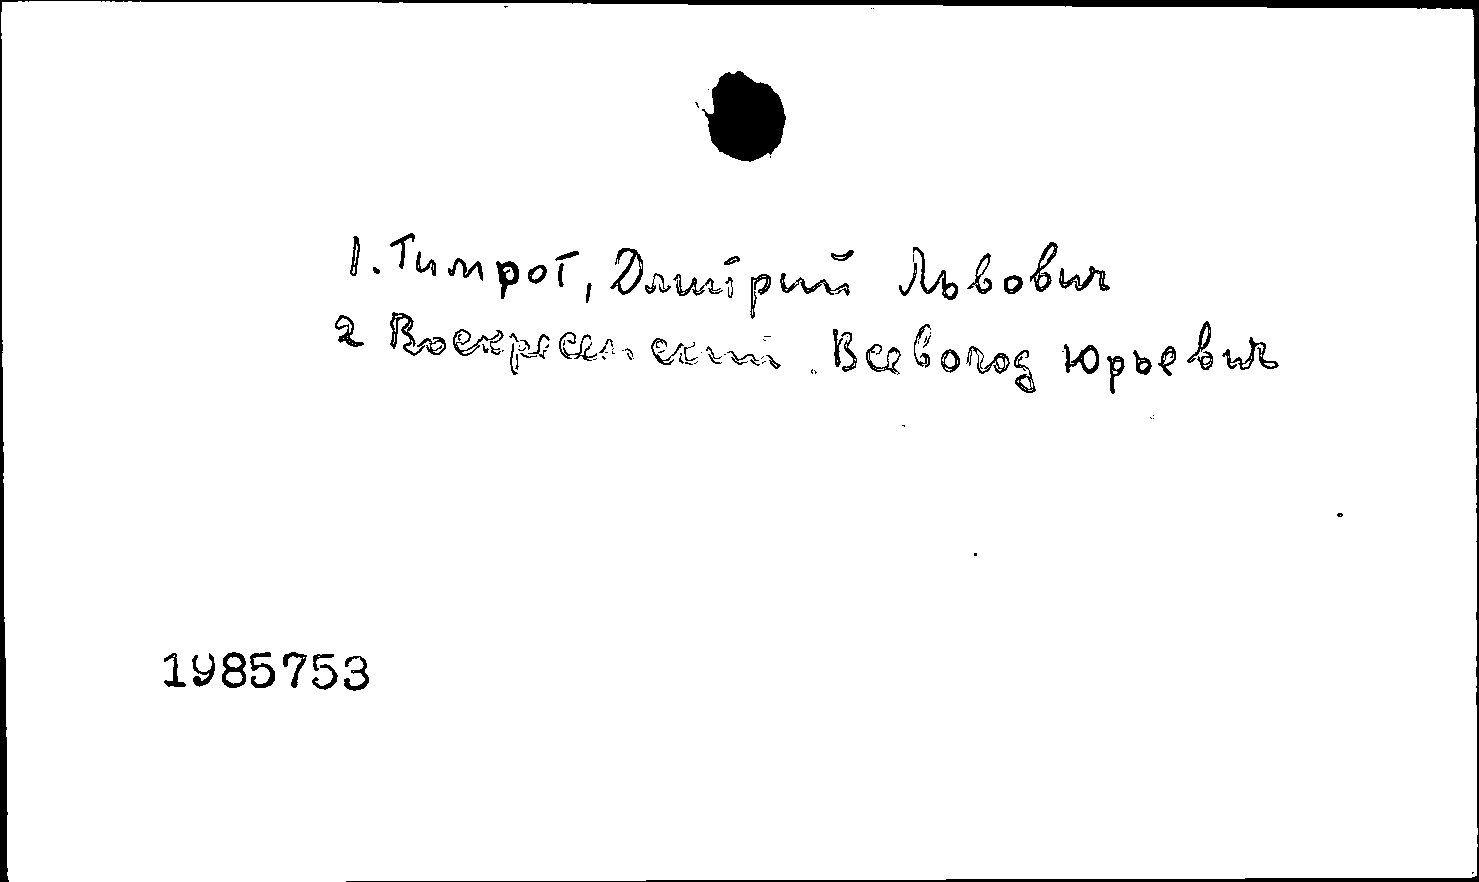 1. Тимрот, Дмитрий Львович
2 Воскресенский Всеволод Юрьевич
1985753